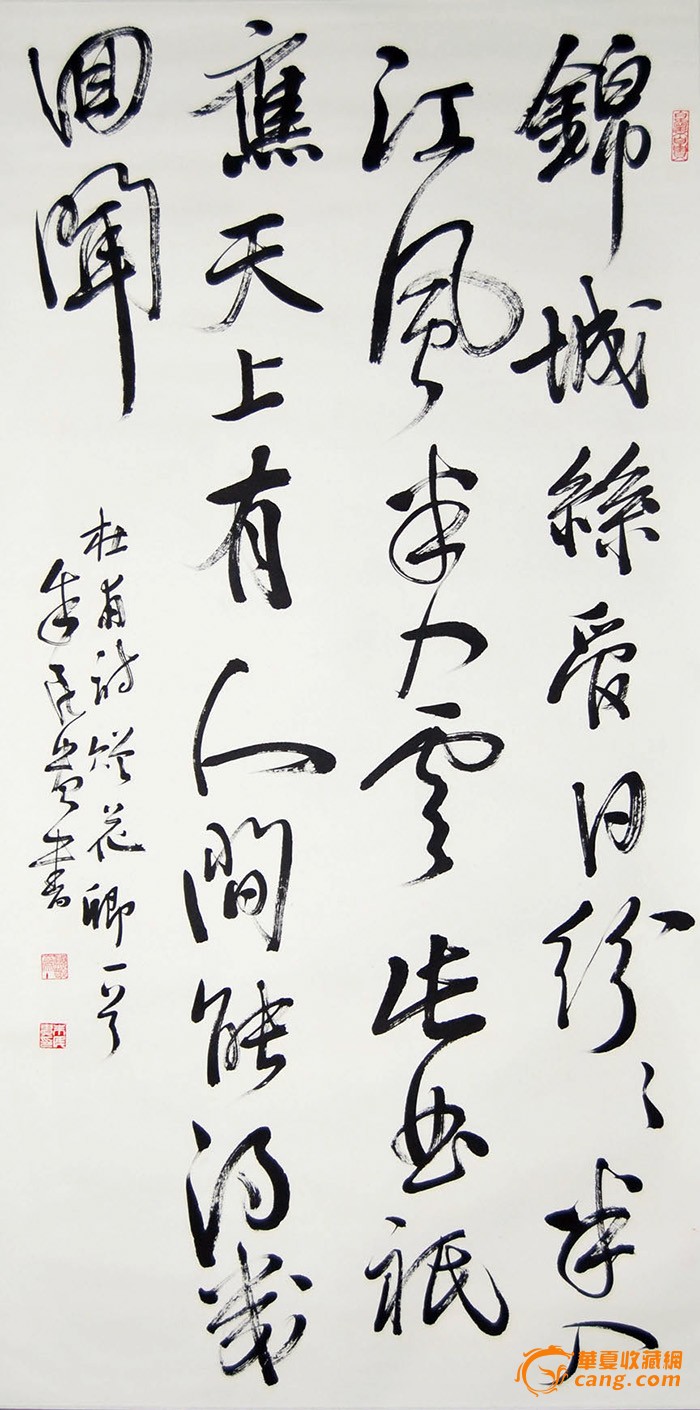 錦城絲管日紛〻半入
江風半入雲此曲祇
應天上有人間能得幾
回聞
杜甫詩贈花卿一首
書
華夏收藏網
cang.com